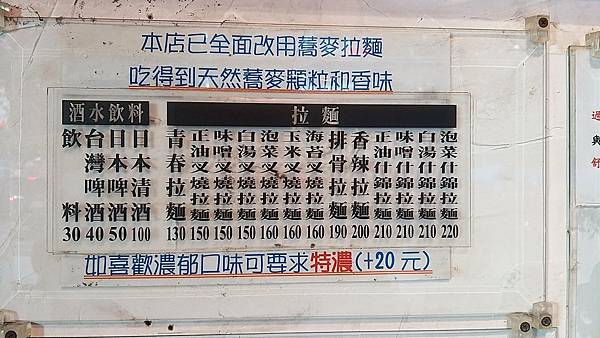 本店已全面改用蕎麥拉麵
吃得到天然蕎麥顆粒和香味
酒水飲料
飲料 30
台灣啤酒 40
日本啤酒 50
日本清酒 100
拉麵
青春拉麵 130
正油叉燒拉麵 150
味噌叉燒拉麵 150
白湯叉燒拉麵 150
泡菜叉燒拉麵 160
玉米叉燒拉麵 160
海苔叉燒拉麵 160
排骨拉麵 190
香辣拉麵 200
正油什錦拉麵 210
味噌什錦拉麵 210
白湯什錦拉麵 210
泡菜什錦拉麵 220
如喜歡濃郁口味可要求特濃(+20元)
與
舒